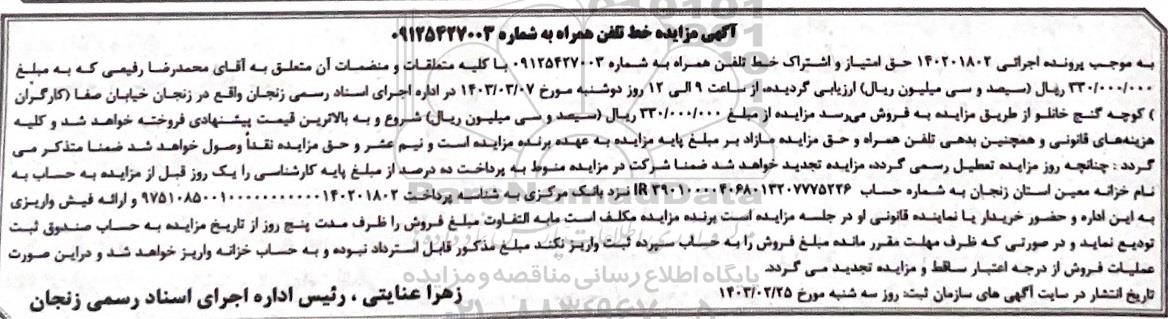 آگهی مزایده خط تلفن همراه به شماره ۰۹۱۲۵۴۲۷۰۰۳
به موجب پرونده اجرائی ۱۴۰۲۰۱۸۰۲ حق امتیاز و اشتراک خط تلفن همراه به شماره ۰۹۱۲۵۴۲۷۰۰۳ با کلیه متعلقات و منضمات آن متعلق به آقای محمدرضا رفیعی که به مبلغ
۳۳۰/۰۰۰/۰۰۰ ریال (سیصد و سی میلیون ریال) ارزیابی گردیده، از ساعت ۹ الی ۱۲ روز دوشنبه مورخ ۱۴۰۳/۰۳/۰۷ در اداره اجرای اسناد رسمی زنجان واقع در زنجان خیابان صفا (کارگران
) کوچه گنج خانلو از طریق مزایده به فروش می‌رسد مزایده از مبلغ ۳۳۰/۰۰۰/۰۰۰ ریال (سیصد و سی میلیون ریال) شروع و به بالاترین قیمت پیشنهادی فروخته خواهد شد و کلیه
هزینه‌های قانونی و همچنین بدهی تلفن همراه و حق مزایده مازاد بر مبلغ پایه مزایده به عهده برنده مزایده است و نیم عشر و حق مزایده نقداً وصول خواهد شد ضمنا متذکر می
گردد : چنانچه روز مزایده تعطیل رسمی گردد، مزایده تجدید خواهد شد ضمنا شرکت در مزایده منوط به پرداخت ده درصد از مبلغ پایه کارشناسی را یک روز قبل از مزایده به حساب به
نام خزانه معین استان زنجان به شماره حساب IR ۳۹۰۱۰۰۰۰۴۰۶۸۰۱۳۲۰۷۷۷۵۲۲۶ نزد بانک مرکزی به شناسه پرداخت ۹۷۵۱۰۸۵۰۰۱۰۰۰۰۰۰۰۰۰۰۰۰۱۴۰۲۰۱۸۰۲ و ارائه فیش واریزی
به این اداره و حضور خریدار یا نماینده قانونی او در جلسه مزایده است برنده مزایده مکلف است مابه التفاوت مبلغ فروش را ظرف مدت پنج روز از تاریخ مزایده به حساب صندوق ثبت
تودیع نماید و در صورتی که ظرف مهلت مقرر مانده مبلغ فروش را به حساب سپرده ثبت واریز نکند مبلغ مذکور قابل استرداد نبوده و به حساب خزانه واریز خواهد شد و دراین صورت
عملیات فروش از درجه اعتبار ساقط و مزایده تجدید می گردد.
تاریخ انتشار در سایت آگهی های سازمان ثبت: روز سه شنبه مورخ ۱۴۰۳/۰۲/۲۵
زهرا عنایتی ، رئیس اداره اجرای اسناد رسمی زنجان
پایگاه اطلاع رسانی مناقصه و مزایده